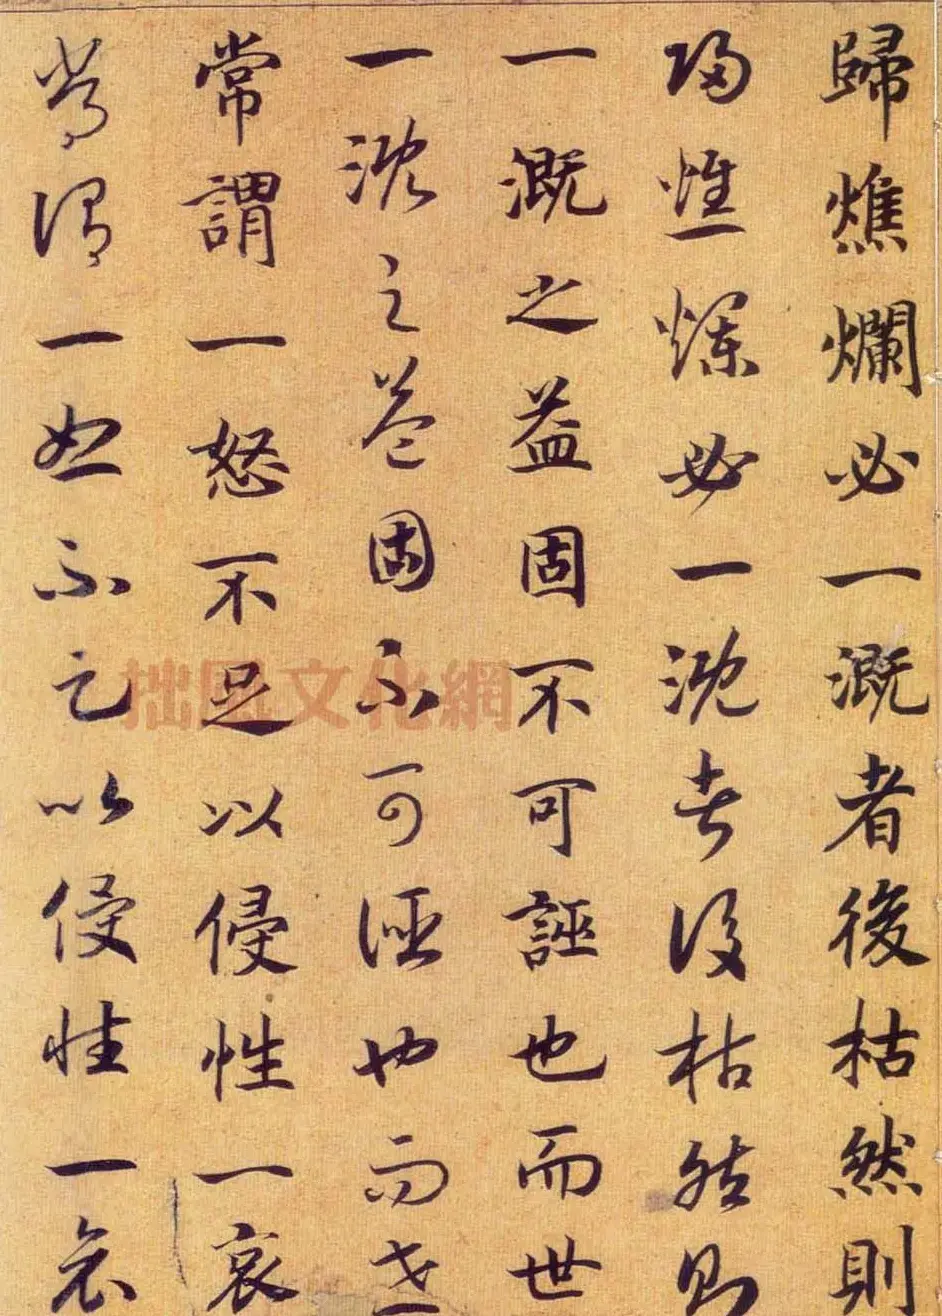 歸燋爛必一溉者後枯然則
歸燋爛必一溉者後枯然則
一溉之益固不可誣也而世
一溉之益固不可誣也而世
常謂一怒不足以侵性一哀
常謂一怒不足以侵性一哀
拙風文化網